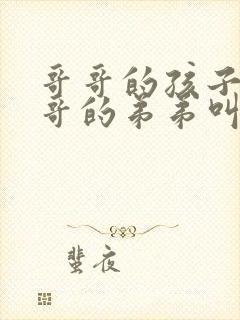 哥哥的孩子
哥的弟弟叫
蜚夜